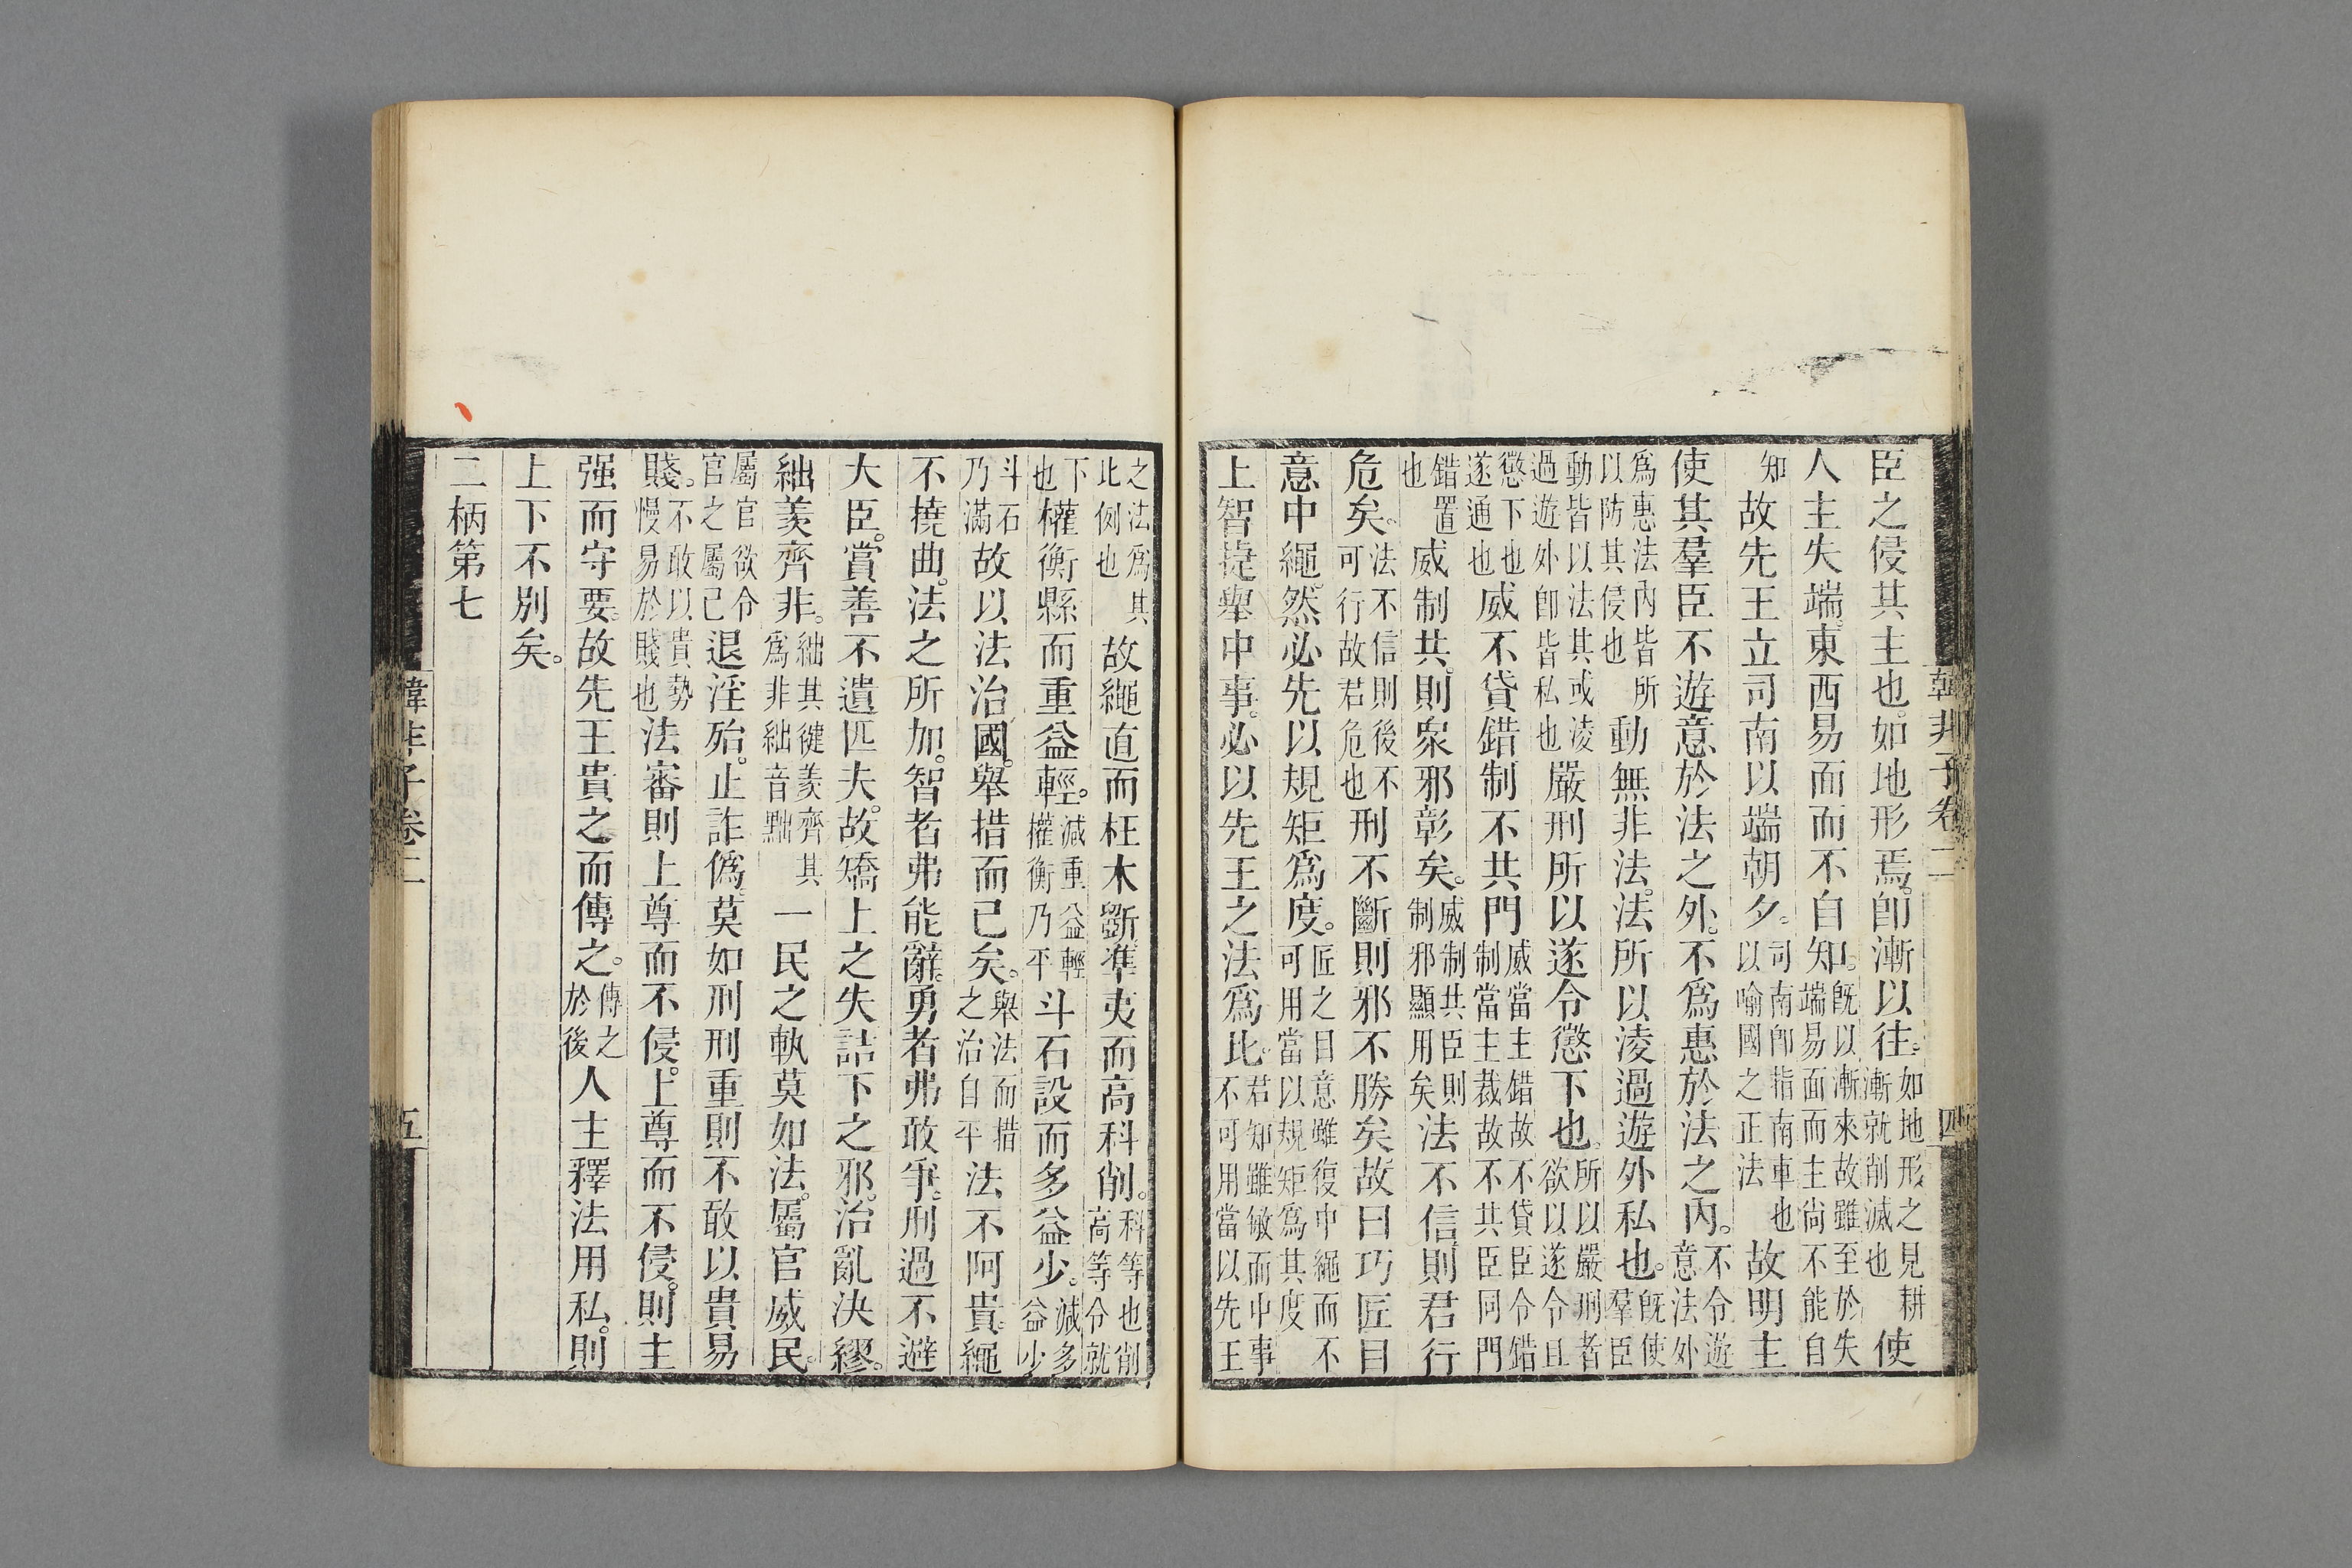 韓非子卷二
四
臣之侵其主也。如地形焉。卽漸以往。如地形之見耕漸就削滅也使
人主失端。東西易面而不自知。旣以漸來故雖至於失端易面而主尙不能自
知故先王立司南以端朝夕。司南卽指南車也以喻國之正法故明主
使其羣臣不遊意於法之外。不爲惠於法之內。不令遊意法外
爲惠法內皆所以防其侵也動無非法。法所以淩過遊外私也。旣使羣臣
動皆以法其或淩過遊外卽皆私也嚴刑所以遂令懲下也。所以嚴刑者欲以遂令且
懲下也遂通也威不貸錯制不共門威當主錯故不貸臣令錯制當主裁故不共臣同門
錯置也威制共。則衆邪彰矣。威制共臣則制邪顯用矣法不信則君行
危矣。法不信則後不可行故君危也刑不斷則邪不勝矣故曰巧匠目
意中繩。然必先以規矩爲度。匠之目意雖復中繩而不可用當以規矩爲其度
上智捷舉中事。必以先王之法爲比。君知雖敏而中事不可用當以先王
之法爲其此例也故繩直而枉木斲準夷而高科削。科等也削高等令就
下也權衡縣而重益輕。減重益輕權衡乃平斗石設而多益少。減多益少
斗石乃滿故以法治國。舉措而已矣。舉法而措之治自平法不阿貴。繩
不撓曲。法之所加。智者弗能辭。勇者弗敢爭。刑過不避
大臣。賞善不遺匹夫。故矯上之失詰下之邪。治亂決繆。
絀羨齊非。絀其健羨齊其爲非絀音黜一民之軌莫如法。屬官威民。
屬官欲令官之屬己退淫殆。止詐僞。莫如刑刑重則不敢以貴易
賤。不敢以貴勢慢易於賤也法審則上尊而不侵。上尊而不侵。則主
强而守要。故先王貴之而傳之。傳之於後人主釋法用私。則
上下不別矣。
二柄第七
韓非子卷二
五